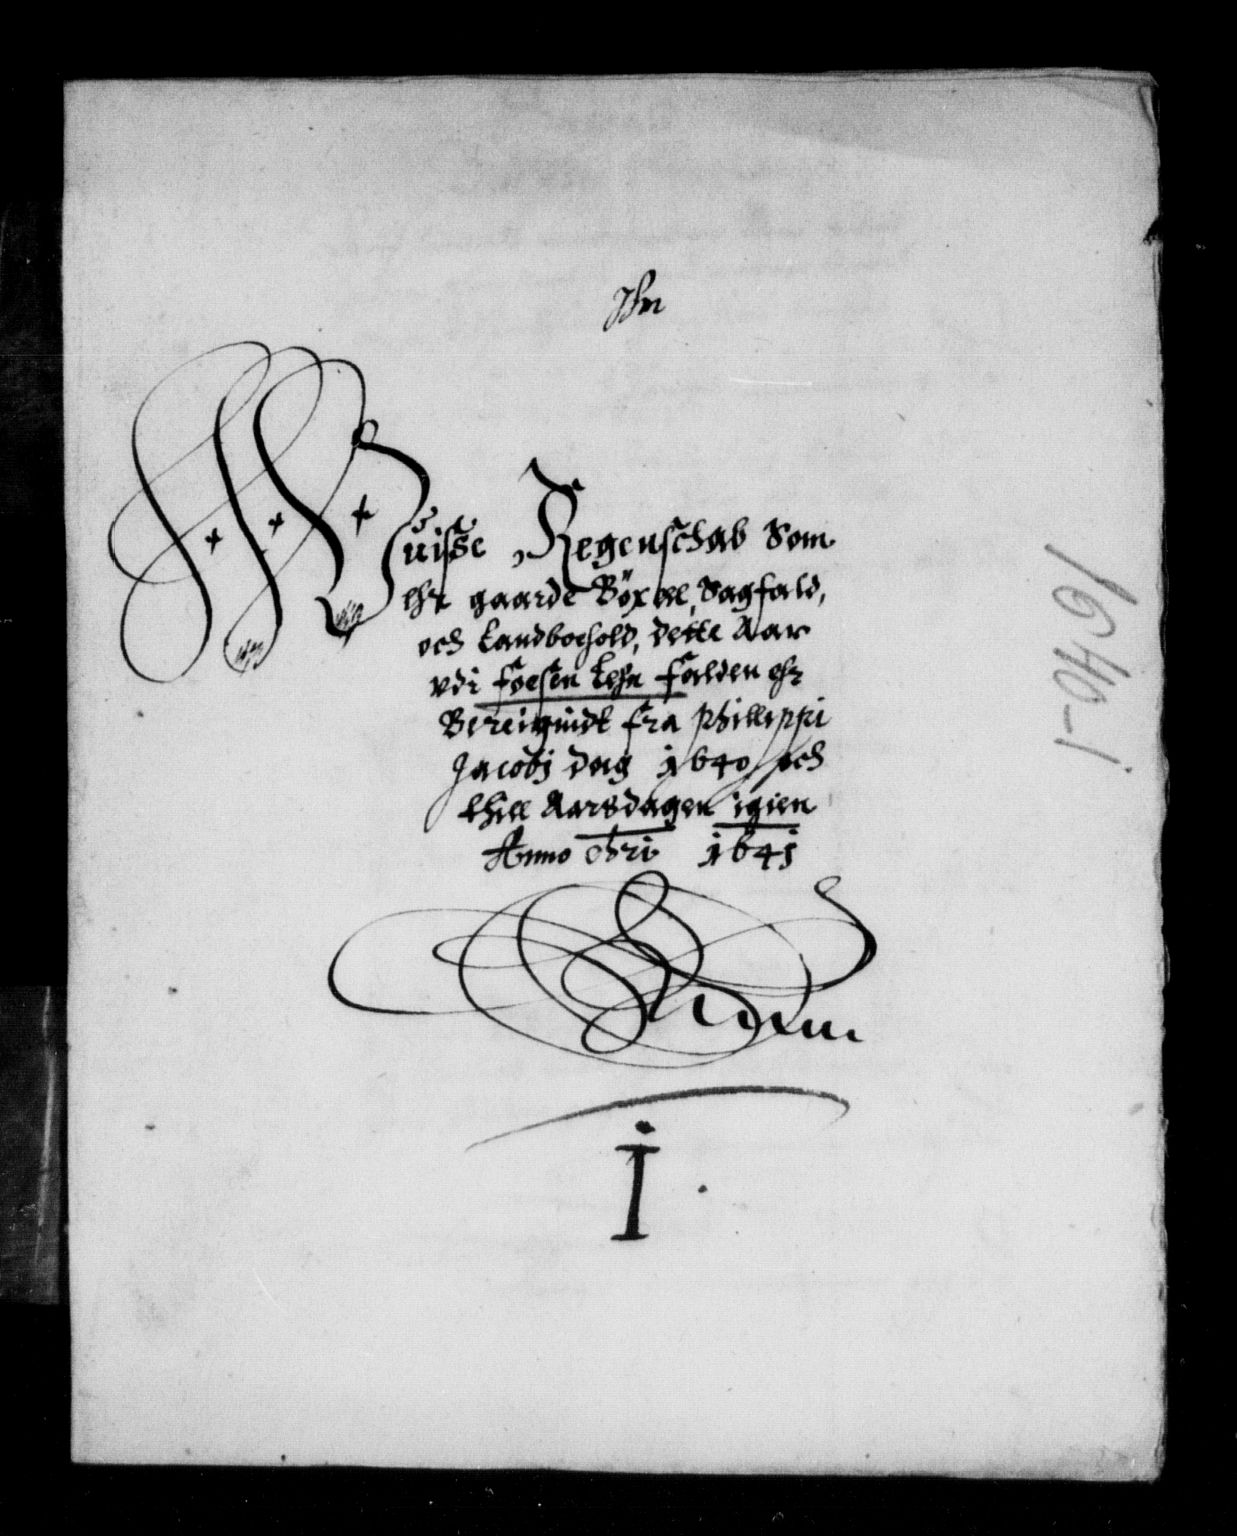 Jhn
Wuisse Regenschab Som
ehr gaarde Böxel, Sagfald,
och Landboehold, dette Aar
vdi Foesen Lehn falden ehr
Bereignidt fra Phillippi
Jacobj dag 1640 och
thill Aarsdagen igien
Anno Chri 1641
1
1640-1